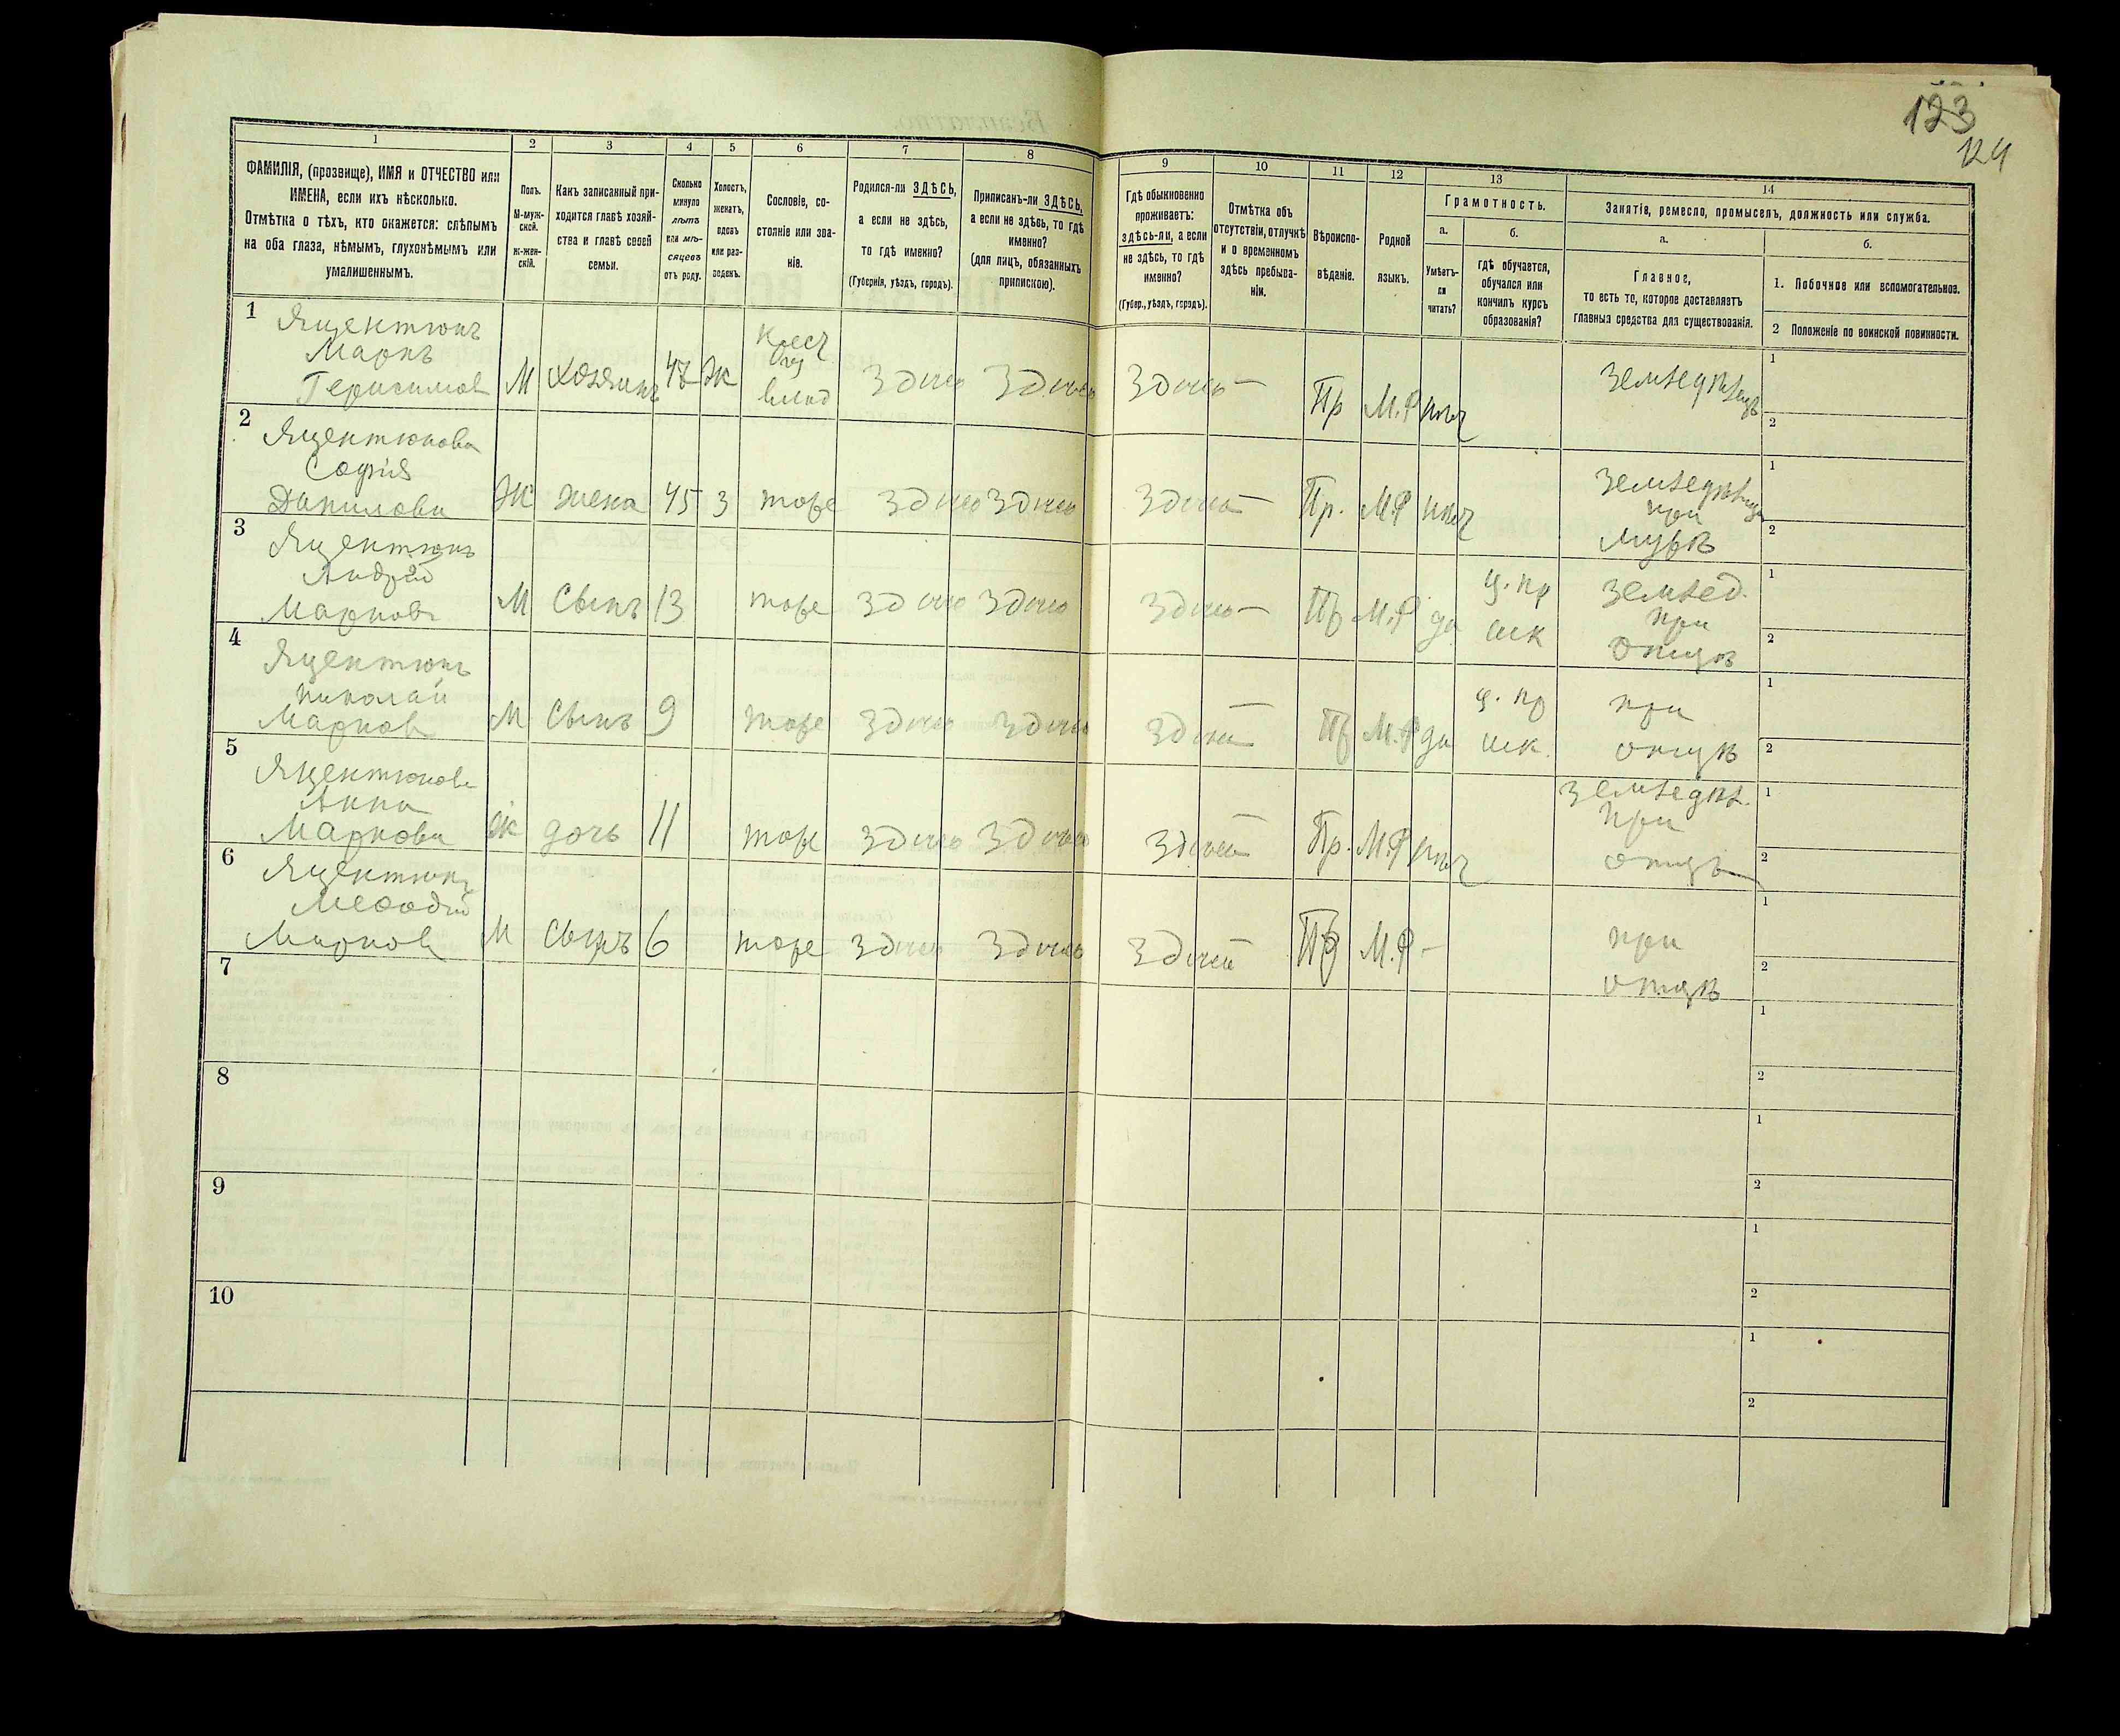 123
124
1 2 3 4 5 6 7 8 9 10 11 12 13 14
ФАМИЛІЯ, (прозвище), ИМЯ и ОТЧЕСТВО или
ИМЕНА, если ихъ нѣсколько.
Отмѣтка о тѣхъ, кто окажется: слѣпымъ
на оба глаза, нѣмымъ, глухонѣмымъ или
умалишеннымъ.
Полъ.
М-муж-
ской.
Ж-жен-
скій.
Какъ записанный при-
ходится главѣ хозяй-
ства и главѣ своей
семьи.
Сколько
минуло
лѣтъ
или мѣ-
сяцевъ
отъ роду.
Холостъ,
женатъ,
вдовъ
или раз-
веденъ.
Сословіе, со-
стояніе или зва-
ніе.
Родился-ли ЗДѢСЬ,
а если не здѣсь,
то гдѣ именно?
(Губернія, уѣздъ, городъ).
Приписанъ-ли ЗДѢСЬ,
а если не здѣсь, то гдѣ
именно?
(для лицъ, обязанныхъ
припискою).
Гдѣ обыкновенно
проживаетъ:
здѣсь-ли, а если
не здѣсь, то гдѣ
именно?
(Губер., уѣздъ, городъ).
Отмѣтка объ
отсутствіи, отлучкѣ
и о временномъ
здѣсь пребыва-
ніи.
Вѣроиспо-
вѣданіе.
Родной
языкъ.
Грамотность.
а.
Умѣетъ-
ли
читать?
б.
гдѣ обучается,
обучался или
кончилъ курсъ
образованія?
Занятіе, ремесло, промыселъ, должность или служба.
а.
Главное,
то есть то, которое доставляетъ
главныя средства для существованія.
б.
1. Побочное или вспомогательное.
2 Положеніе по воинской повинности.
1
Яцентюкъ
Маркъ
Герасимов
М Хозяинъ 47 Ж
Крес
влад
Здись Здись Здись — Пр М.Р нѣт
Земледѣлецъ
1
2
2
Яцентюкова
Софія
Данилова
Ж жена 45 З тоже Здись Здись Здись — Пр. М.Р нѣт
при
мужѣ
1
2
3
Яцентюкъ
Андрій
Марков
М Сынъ 13 тоже Здись Здись Здись — Пр М.Р да
ц. пр
шк
Землед.
при
отцѣ
1
2
4
Яцентюкъ
Николай
Марков
М Сынъ 9 тоже Здись Здись Здись — Пр М.Р да
ц. пр
шк.
при
отцѣ
1
2
5
Яцентюкова
Анна
Маркова
Ж дочь 11 тоже Здись Здись Здись — Пр. М.Р нѣт
Земледѣл.
при
отцѣ
1
2
6
Яцентюкъ
Меѳодій
Марков
М Сынъ 6 тоже Здись Здись Здись — Пр М.Р —
при
отцѣ
1
2
7
1
2
8
1
2
9
1
2
10
1
2